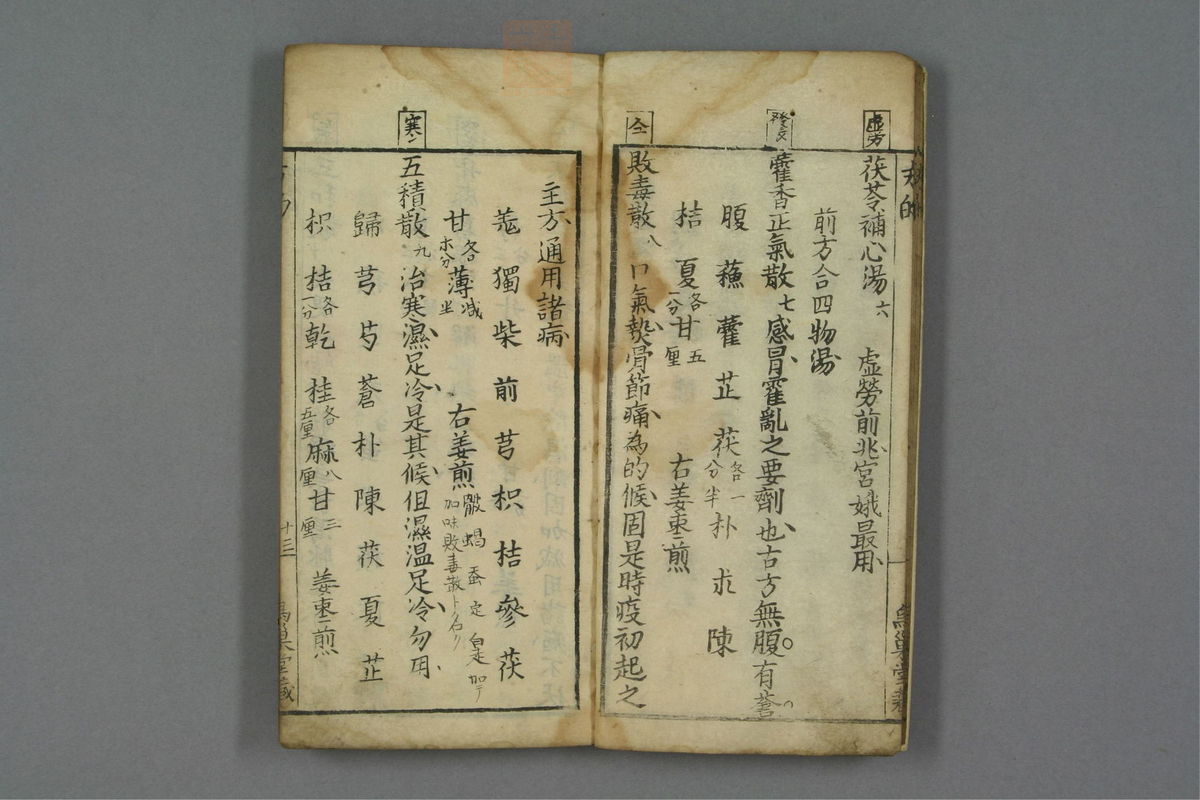 虚労
茯苓補心湯六 虚勞前兆宮娥最用
前方合四物湯
發交
藿香正氣散七感冒霍亂之要劑也古方無腹有蒼
腹 蘓 藿 芷 茯各一分半朴 朮 陳
桔 夏各一分甘五厘 右姜棗煎
仝
敗毒散八 口氣熱骨節痛為的候固是時疫初起之
主方通用諸病
羗 獨 柴 前 芎 枳 桔 參 茯
甘各 薄减 右姜煎 蝎 蚕 定
加味敗毒散ト名リ
寒
五積散九治寒濕足冷是其候但濕温足冷勿用
歸 芎 芍 蒼 朴 陳 茯 夏 芷
枳 桔各一分乾 桂各五厘麻八厘甘三厘 姜棗煎
十三
巢堂藏